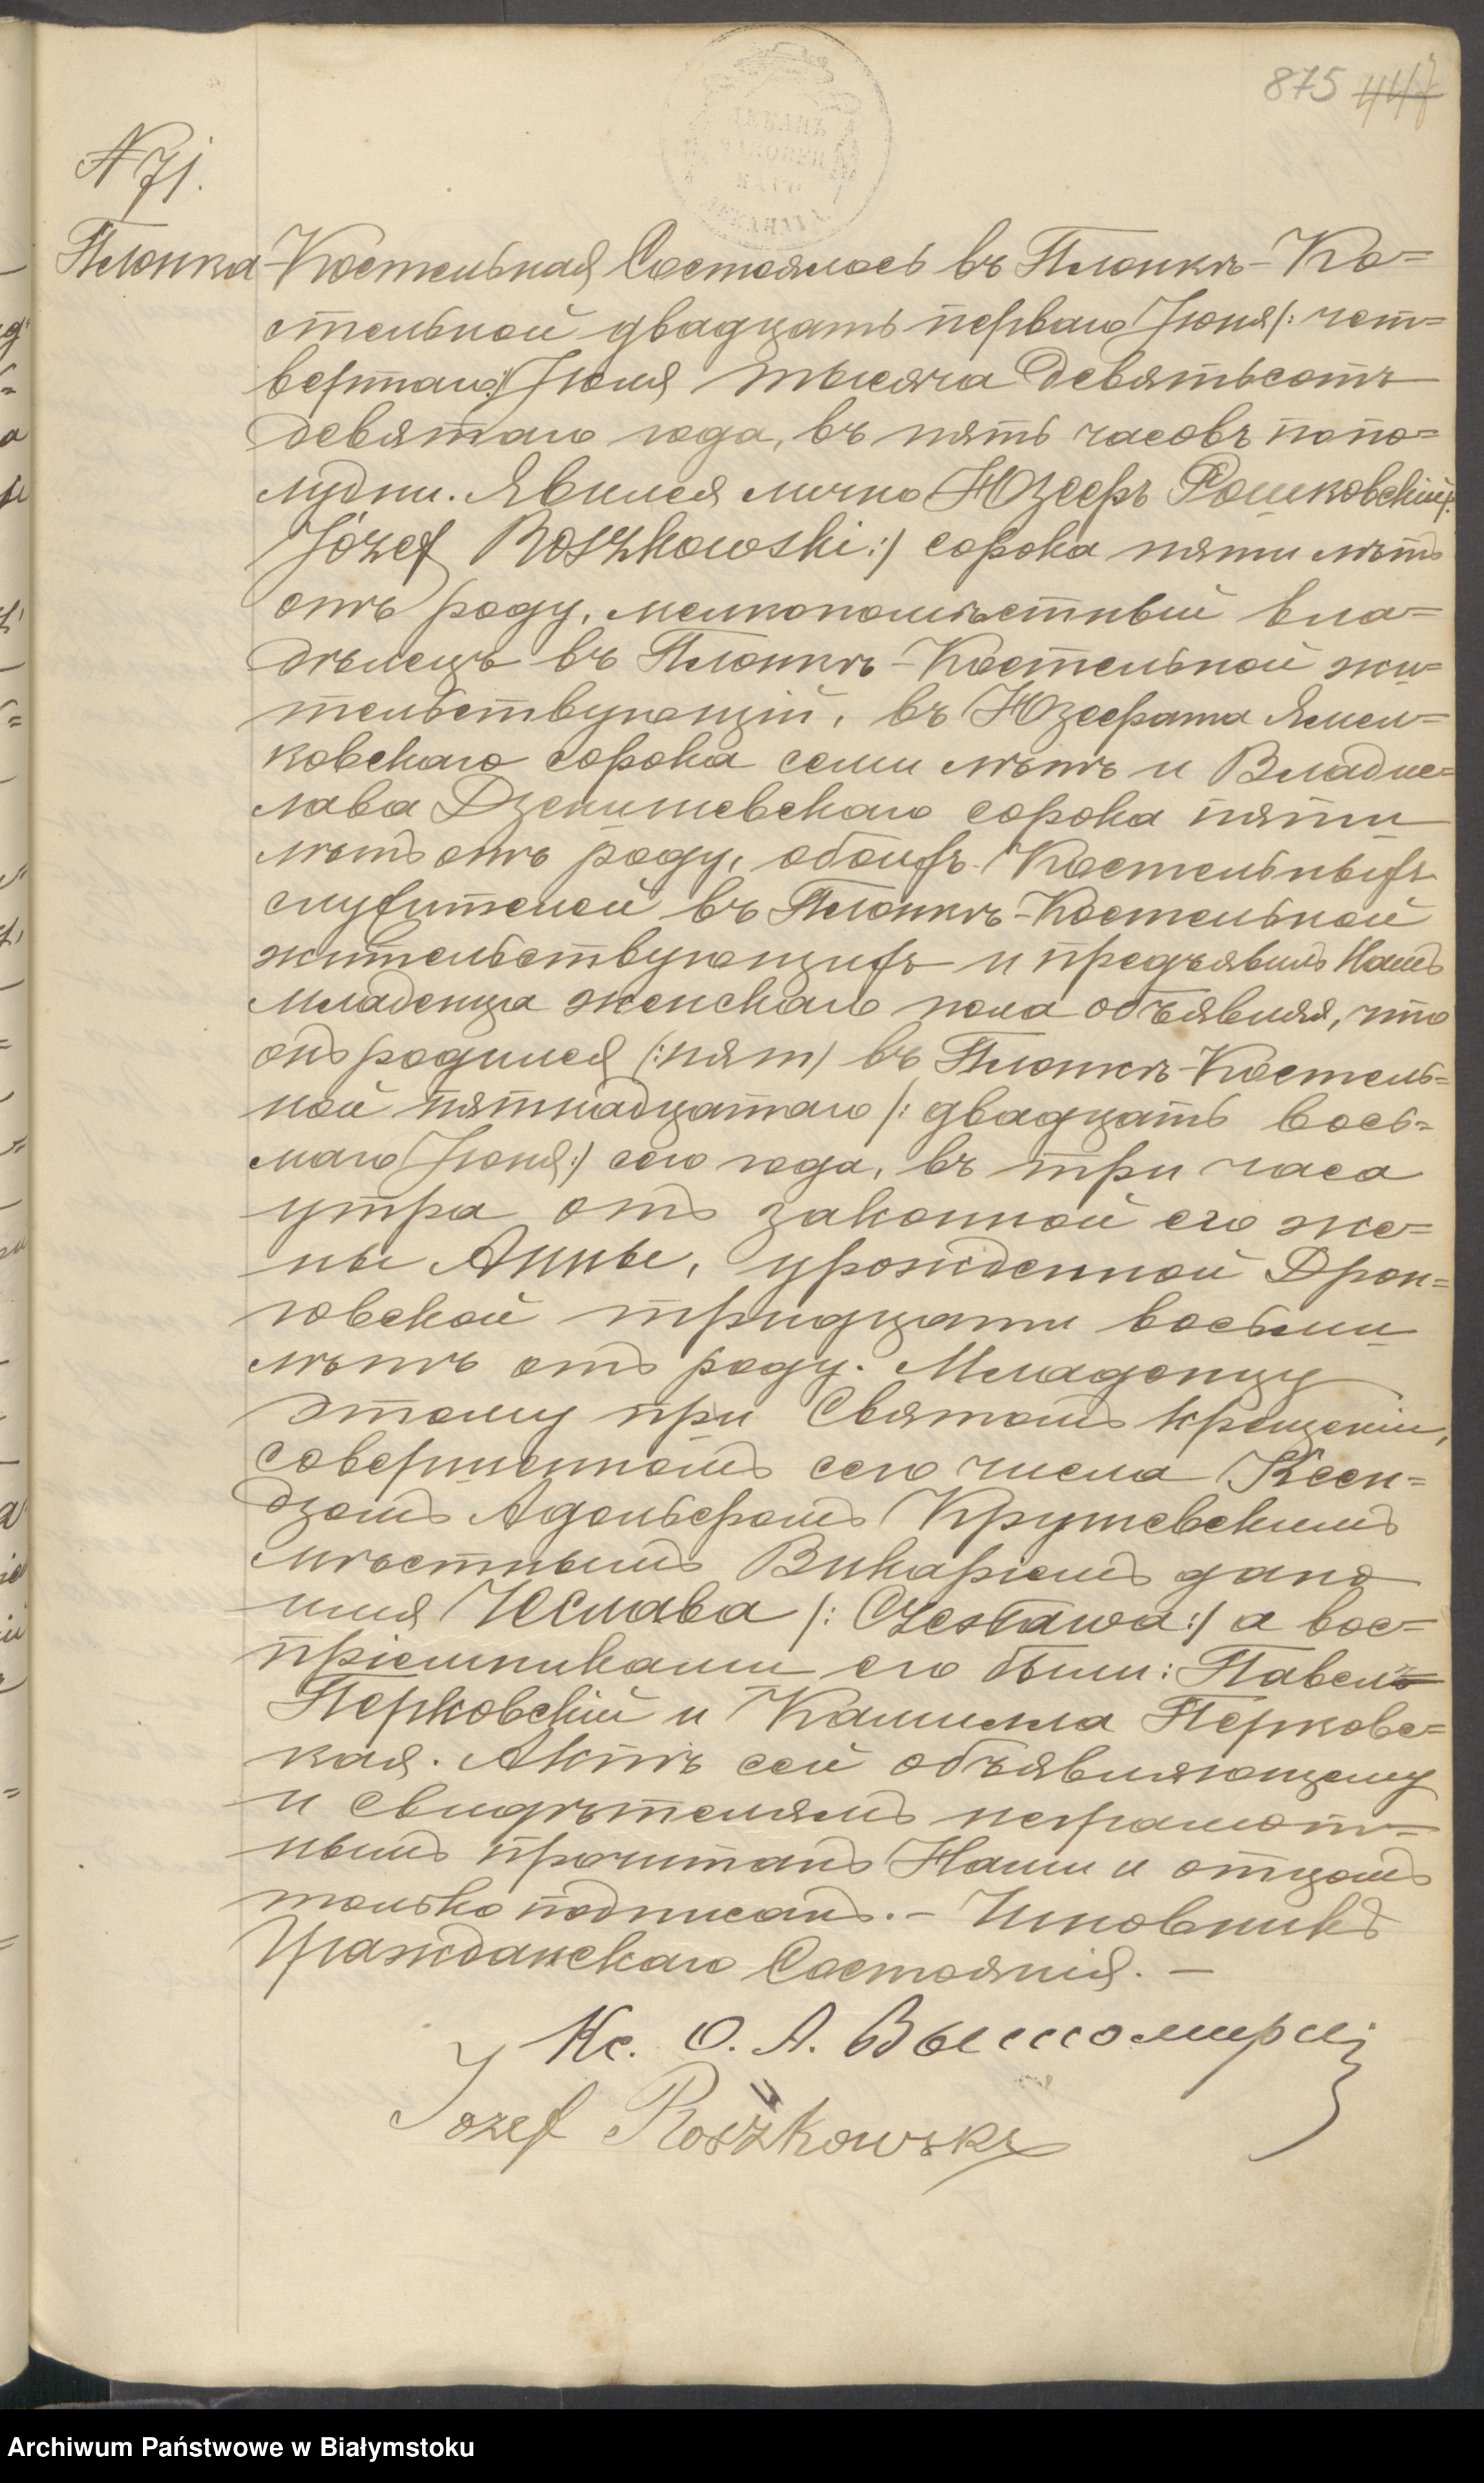 875 447
N 71.
Плонка-Костельная Состоялось въ Плонкѣ-Ко=
стельной двадцать перваго Іюня /: чет=
вертаго :/ Іюля тысяча девятьсотъ
девятаго года, въ пять часовъ попо=
лудни. Явился лично Юзефъ Рошковскій /:
Józef Roszkowski :/ сорока пяти лѣтъ
отъ роду, мелкопомѣстный вла=
дѣлецъ въ Плонкѣ-Костельной жи=
тельствующій, въ Юзефата Ясен=
ковскаго сорока семи лѣтъ и Владис=
лава Дзенишевскаго сорока пяти
лѣтъ отъ роду, обоихъ Костельныхъ
служителей въ Плонкѣ-Костельной
жительствующихъ и предъявилъ Намъ
младенца женскаго пола объявляя, что
онъ родился /: пят/ въ Плонкѣ-Костель=
ной пятнадцатаго /: двадцать вось=
маго Іюня :/ сего года, въ три часа
утра отъ законной его же=
ны Анны, урожденной Дрон=
говской тридцати восьми
лѣтъ отъ роду. Младенцу
этому при Святомъ крещеніи,
совершенномъ сего числа Ксен=
дзомъ Адольфомъ Крушевскимъ
мѣстнымъ Викаріемъ дано
имя Чеслава /: Czesława :/ а вос=
пріемниками его были: Павелъ
Перковскій и Камилла Перковс=
кая. Актъ сей объявляющему
и свидѣтелямъ неграмот=
нымъ прочитанъ Нами и отцомъ
только подписанъ. – Чиновникъ
Гражданскаго Состоянія. –
Кс. О. А.
Jozef Roszkowski
Archiwum Państwowe w Białymstoku